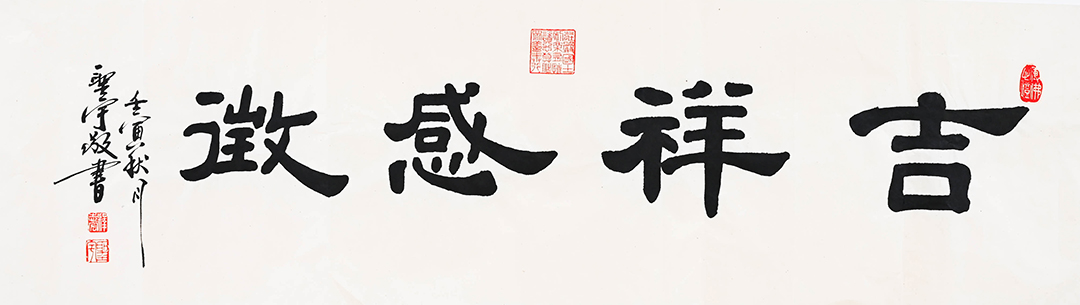 吉祥感徵
壬寅秋月
聖宇敬書